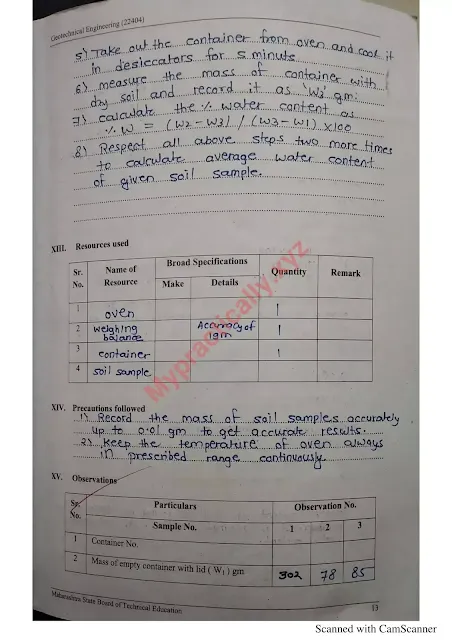 Geotechnical Engineering (22404)
5) Take out the container from oven and cool it
in desiccators for 5 minuts
6) measure the mass of container with
dry soil and record it as 'W3' gm.
7) calculate the % water content as
% W = (W2-W3) / (W3-W1) ×100
8) Respeat all above steps two more times
to calculate average water content
of given soil sample.
XIII. Resources used
Sr. No. Name of Resource Broad Specifications Quantity Remark
Make Details
1 oven 1
2 weighing balance Accuracy of 1gm 1
3 container 1
4 soil sample
XIV. Precautions followed
1) Record the mass of soil samples accurately
up to 0.01 gm to get accurate results.
2) Keep the temperature of oven always
in prescribed range continuously
XV. Observations
Sr. No. Particulars Observation No.
Sample No. 1 2 3
1 Container No.
2 Mass of empty container with lid ( W1 ) gm 302 78 85
Maharashtra State Board of Technical Education 13
Mypractically.xyz
Scanned with CamScanner